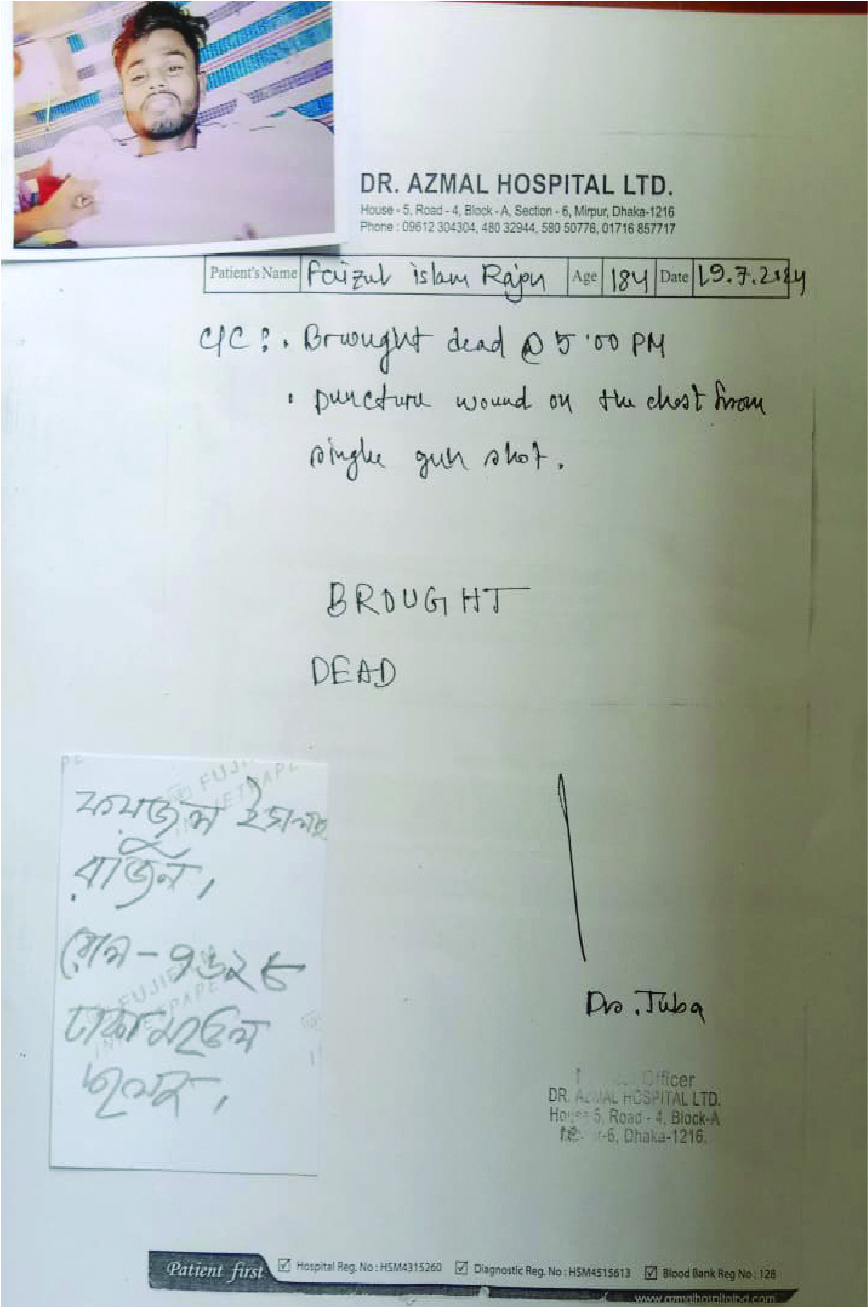 DR. AZMAL HOSPITAL LTD.
House - 5, Road - 4, Block - A, Section - 6, Mirpur, Dhaka-1216
Phone : 09612 304304, 480 32944, 580 50776, 01716 857717
Patient's Name Faizul islam Rajon Age 18y Date 19.7.2024
C/C : . Brought dead @ 5:00 PM
. puncture wound on the chest from
single gun shot.
BROUGHT
DEAD
ফয়জুল ইসলাম
রাজন,
রোল - ৭৬২৮
ঢাকা মডেল
Dr. Tuba
Officer
DR. AZMAL HOSPITAL LTD.
House 5, Road - 4, Block-A
-6, Dhaka-1216.
Patient first
Hospital Reg. No : HSM4315260 Diagnostic Reg. No : HSM4515613 Blood Bank Reg No : 128